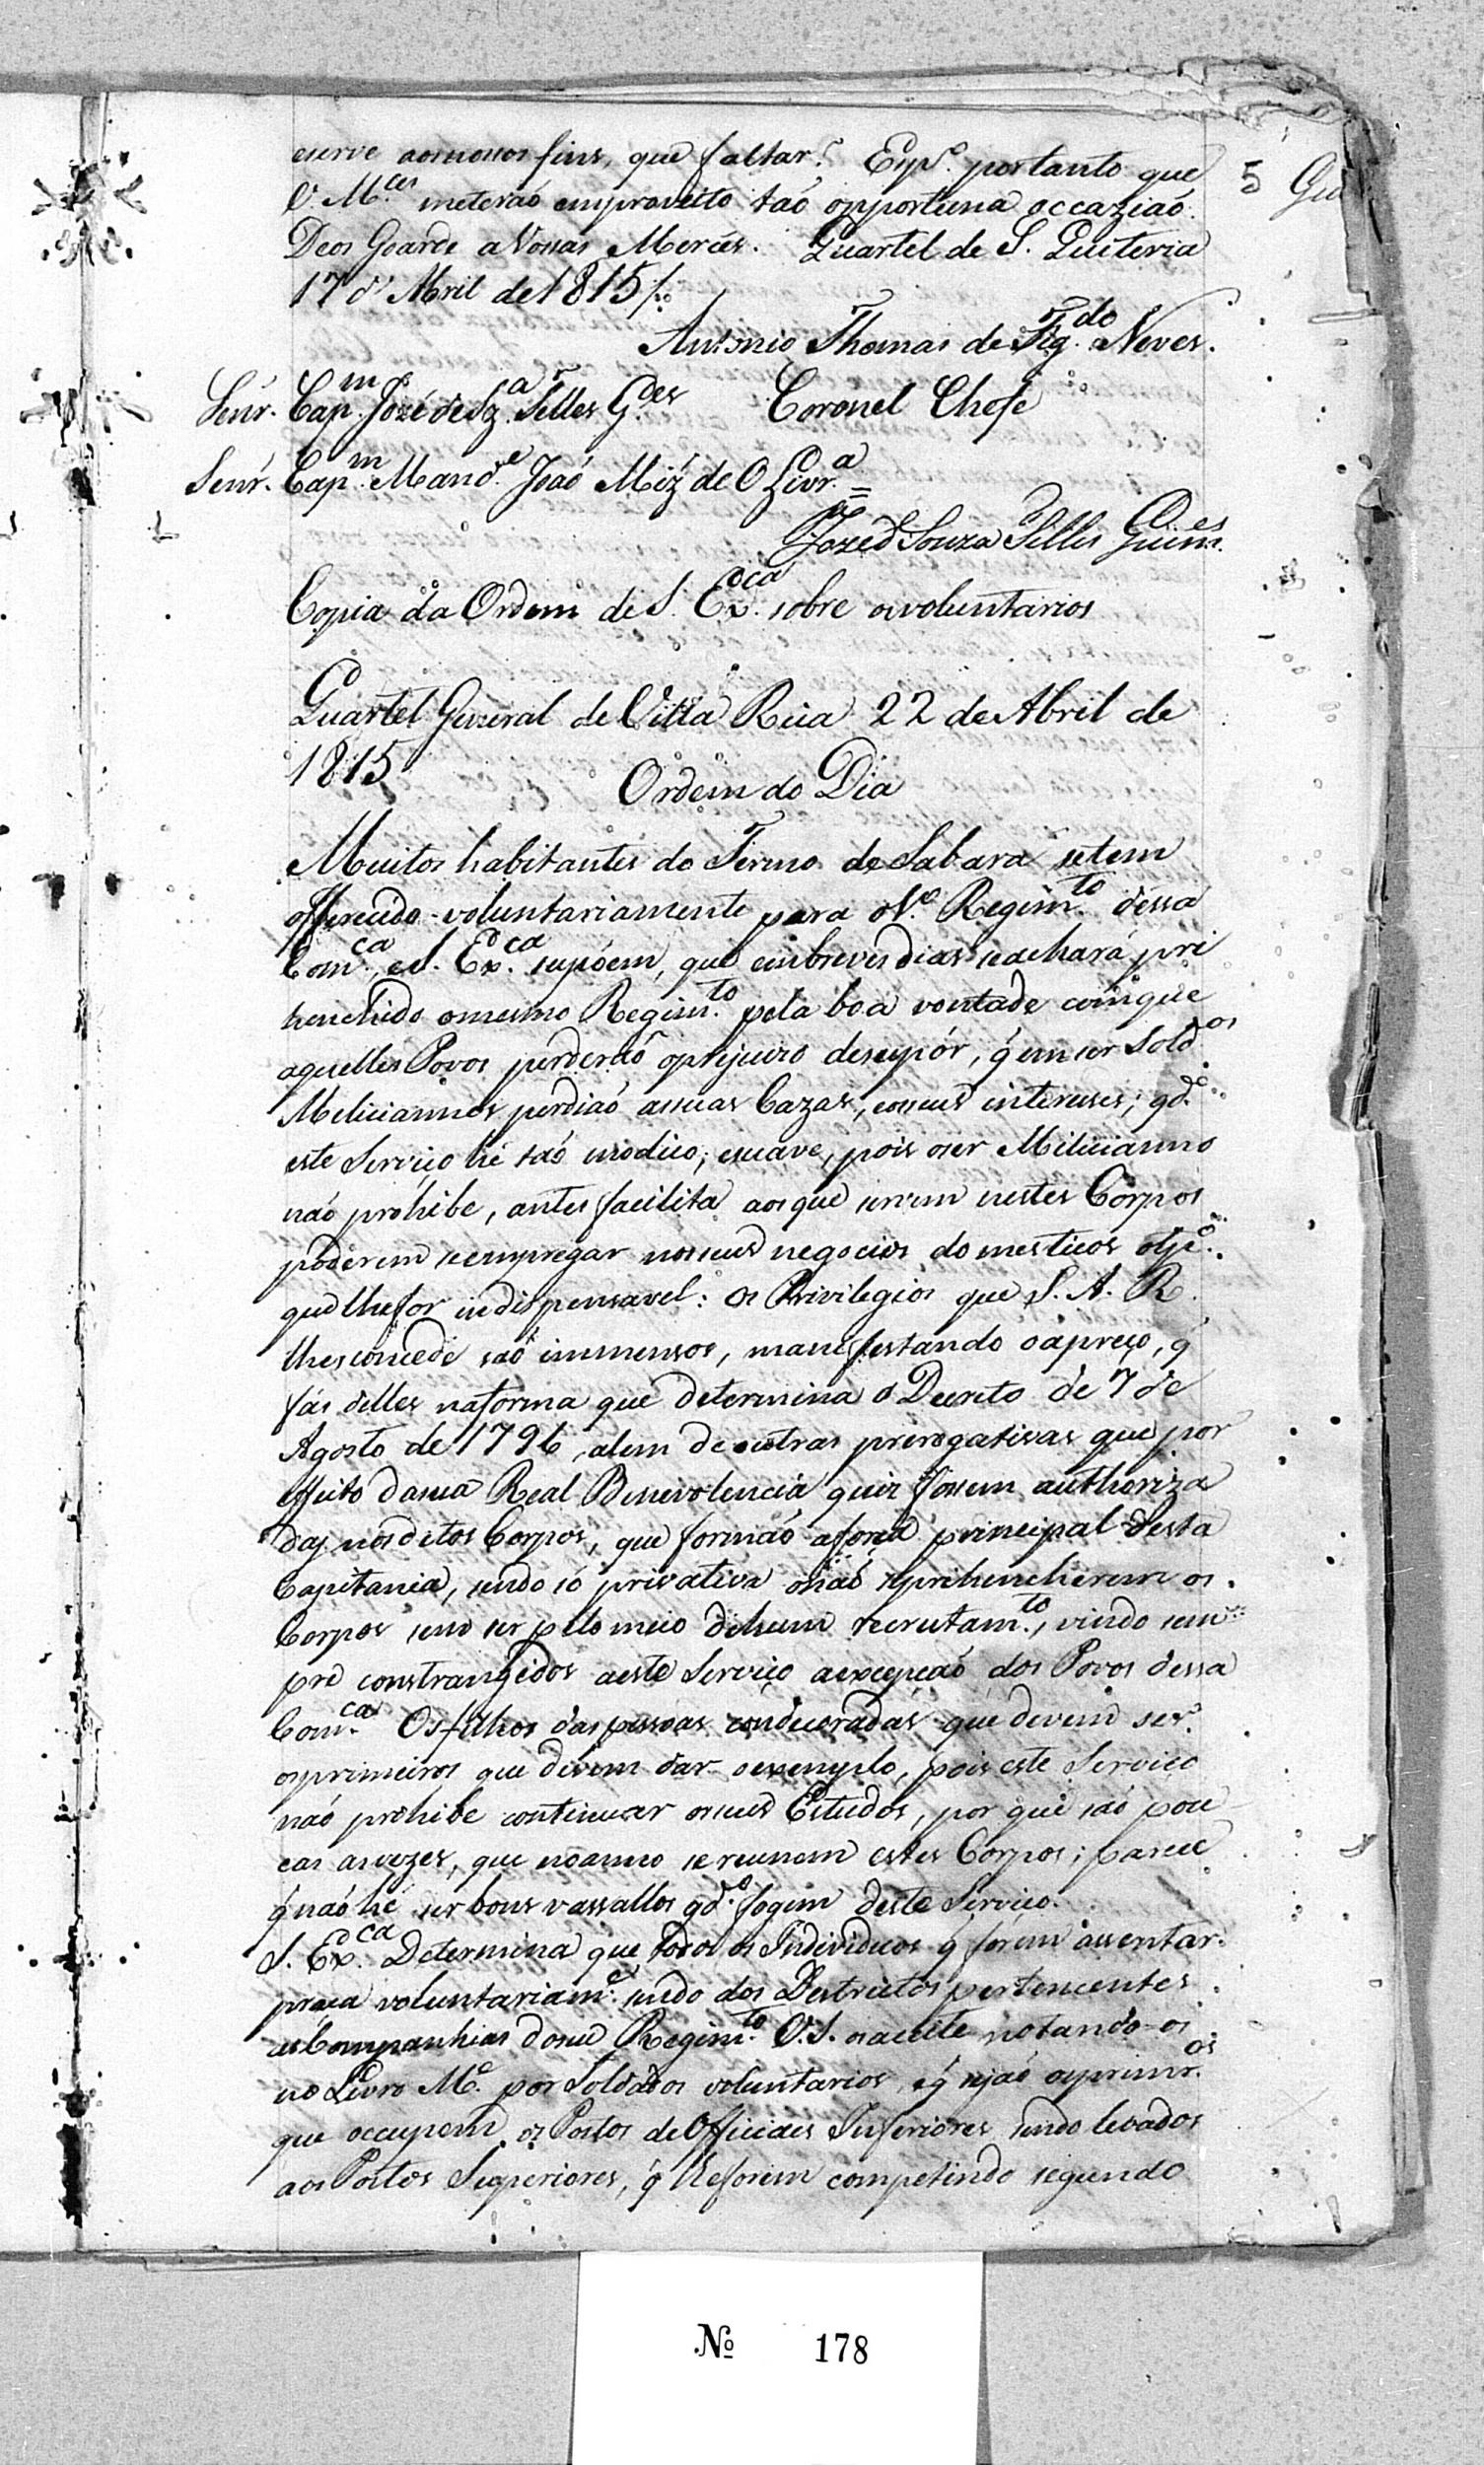 eserve aos nossos fins, que faltar. Esp.º portanto que
V. M.ces meteraó em proveito taó opportuna occaziaó.
5 Gu
Deos Goarde a Vossas Mercês. Quartel de S. Quiteria
17 d' Abril de 1815
Antonio Thomas de Fig.do Neves.
Senr. Cap.m Jozé de Sz.a Telles G.es Coronel Chefe
Senr. Cap.m Mand.e Joaó Miz de Olivr.a =
Joze d Souza Telles Guim.es
Copia da Ordem de S. Ex.ca sobre os voluntarios
Quartel General de Villa Rica 22 de Abril de
1815
Ordem do Dia
Muitos habitantes do Termo de Sabará se tem
offerecido voluntariamente para o N.º Regim.to dessa
Com.ca, e S. Ex.ca supóem, que em breves dias se achará pri
henchido o mesmo Regim.to pela boa vontade com que
aquelles Povos perderaó o prejuizo de supór, q̃ em ser Sold.os
Meliciannos perdiaó as suas Cazas, e os seus interesses; qd.º
este Serviço hé taó modico, e suave, pois o ser Milicianno
naó prohibe, antes facilita aos que servem nestes Corpos
poderem se empregar nos seus negocios domesticos
que lhe for indispensavel: os Privilegios que S. A. R.
lhes concede saó immensos, manifestando o apreço, q̃
fás delles na forma que determina o Decreto de 7 de
Agosto de 1796, alem de outras prerogativas que por
effeito da sua Real Benevolencia quiz fossem authoriza
das nos ditos Corpos, que formaó a força principal desta
Capitania, sendo só privativa o naó se prihencherem os
Corpos sem ser pelo meio de hum recrutam.to, vindo sem
pre constrangidos a este Serviço a excepçaó dos Povos dessa
Com.ca Os filhos das pessoas condecoradas que devem ser
os primeiros que devem dar o exemplo, pois este Serviço
naó prohibe continuar os seus Estudos, por que saó pou
cas as vezes, que no anno se reunem estes Corpos; parece
q̃ naó hé ser bons vassallos qd.º fogem deste Serviço.
S. Ex.ca Determina que todos os Individuos q̃ forem assentar
praça voluntariam.e sendo dos Destrictos pertencentes
as Companhias do seu Regim.to V. S. os aceite notando-os
no Livro M.e por Soldados voluntarios, e q̃ sejaó os primr.os
que occupem os Postos de Officiaes Inferiores sendo levados
aos Postos Superiores, q̃ lhe forem competindo segundo
№ 178